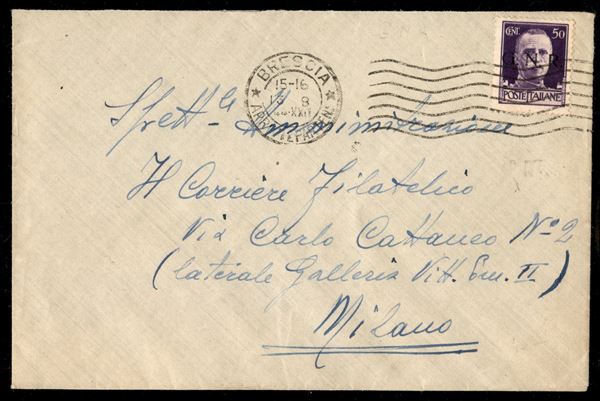 CENT. 50
G.N.R.
POSTE ITALIANE
BRESCIA
15-16
8
XXII
ARRIVI E PARTENZE
Spett. le Amministrazione
Il Corriere Filatelico
Via Carlo Cattaneo No 2
(laterale Galleria Vitt. Em. II)
Milano